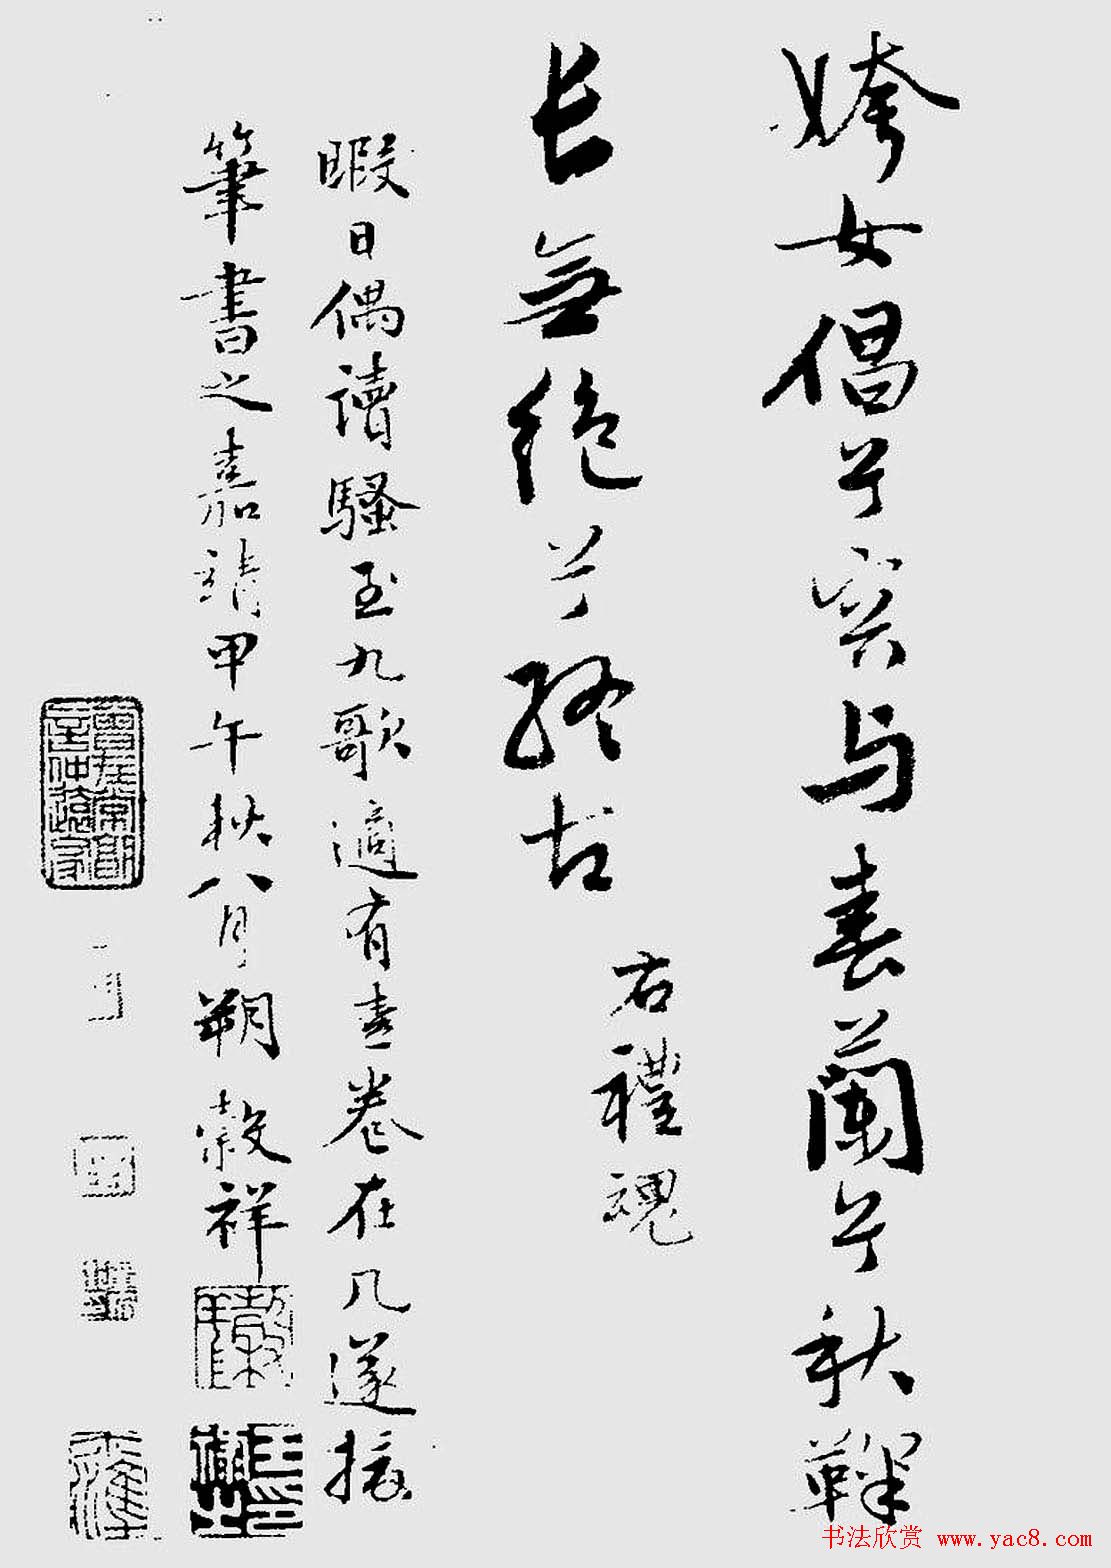 姱女倡兮容与春蘭兮秋鞠
长無絶兮終古
右禮魂
暇日偶讀騷至九歌適有素卷在几遂援
筆書之嘉靖甲午秋八月朔穀祥
书法欣赏 www.yac8.com